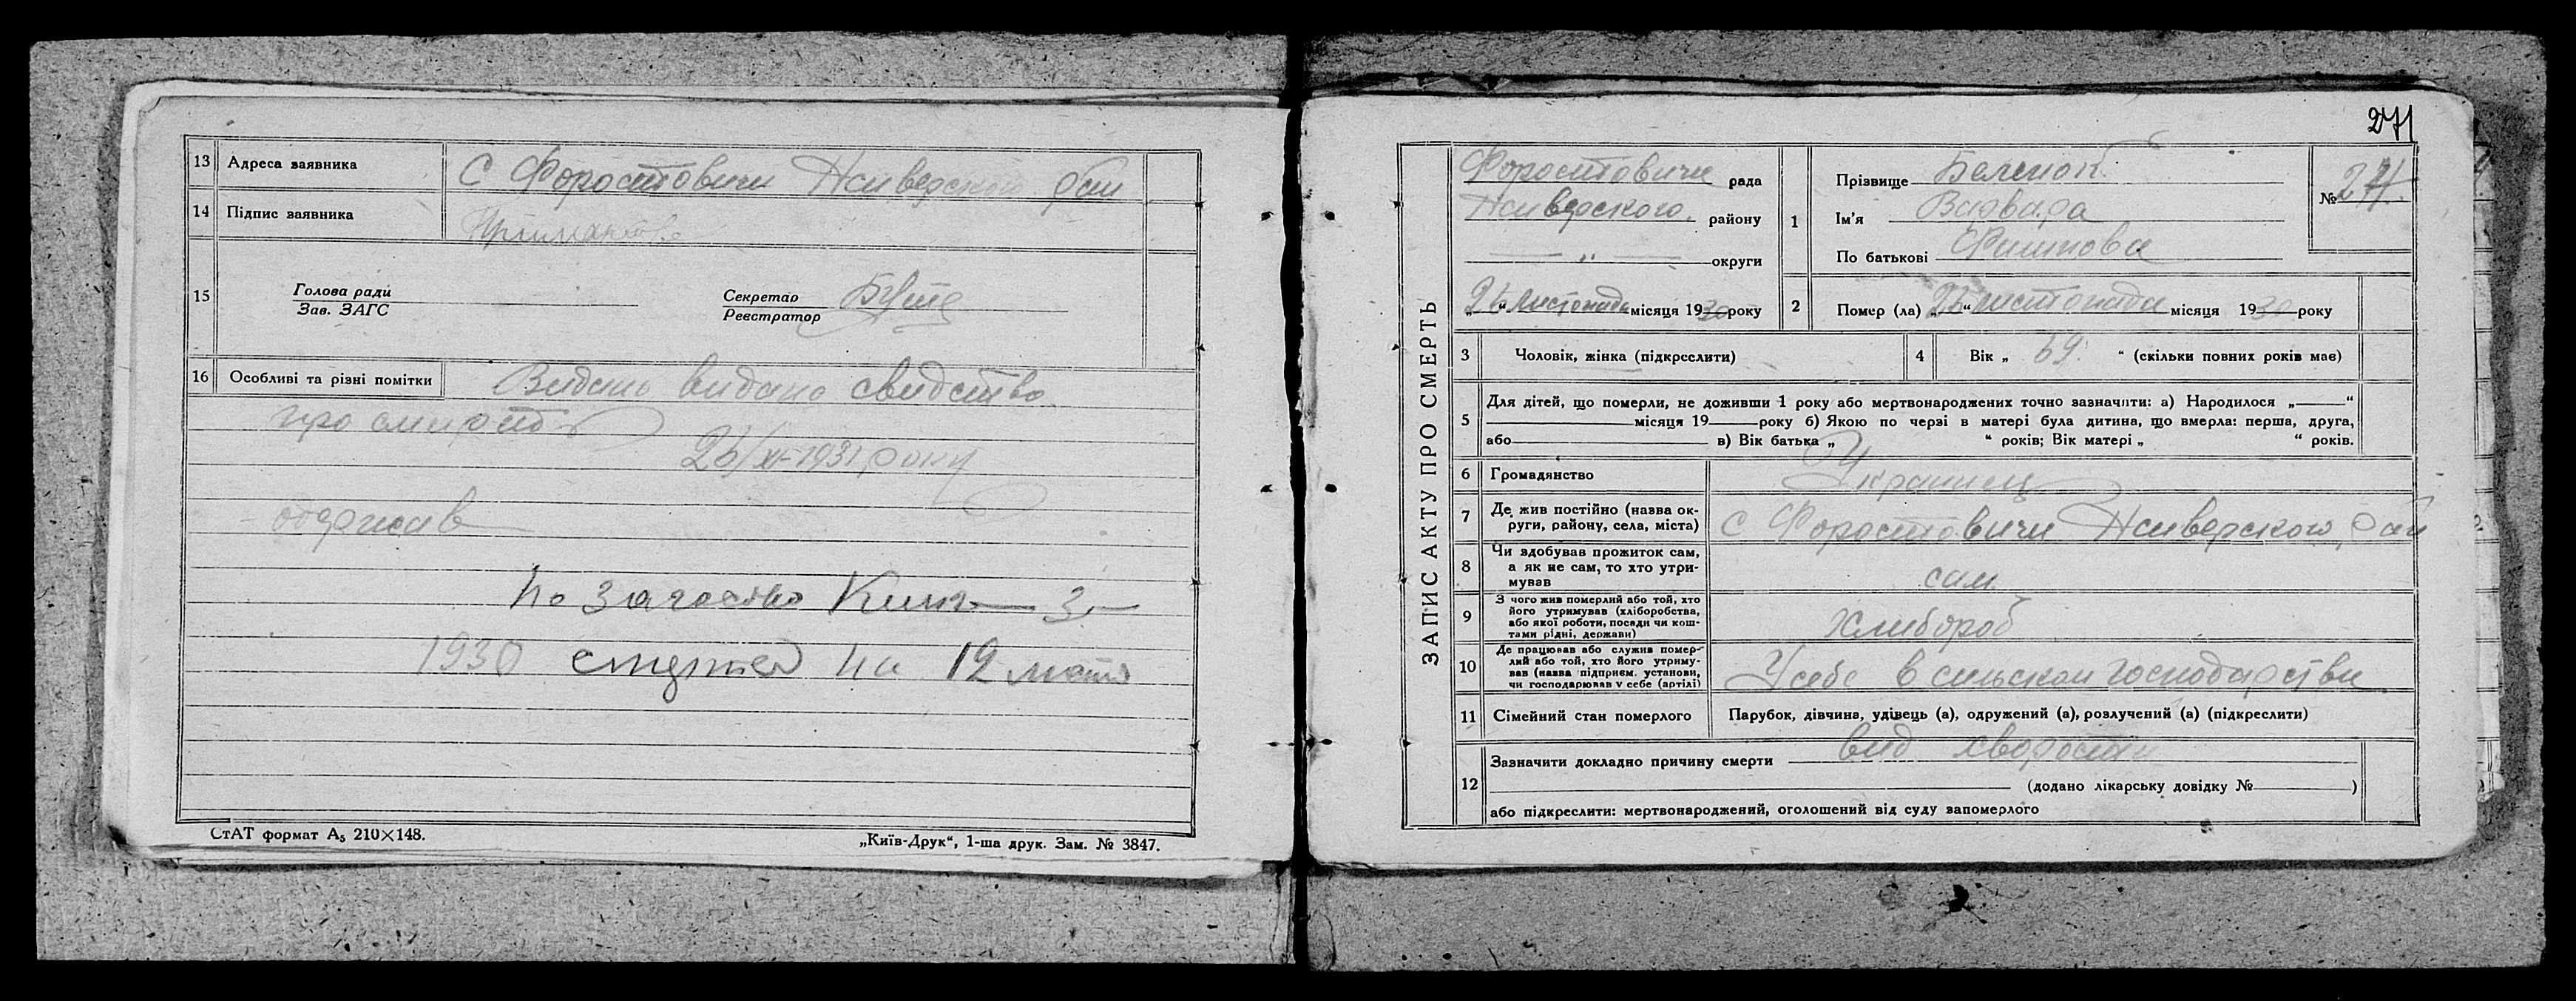 13 Адреса заявника С Форостовичи Живерской рай
14 Підпис заявника
15 Голова ради Зав. ЗАГС Секретар Реєстратор
16 Особливі та різні помітки Видано видано свидство
про смирть
26/XI-1931 року
одержав
1930 на 12 лист
СтАТ формат А₅ 210×148.
„Київ-Друк“, 1-ша друк. Зам. № 3847.
271
ЗАПИС АКТУ ПРО СМЕРТЬ
Форостовичи рада
Живерского району
— „ — округи
„26“ листопада місяця 1930 року
1 Прізвище
Ім'я Варвара
По батькові
№ 24
2 Помер (ла) „26“ листопада місяця 1930 року
3 Чоловік, жінка (підкреслити)
4 Вік „69“ (скільки повних років має)
5 Для дітей, що померли, не доживши 1 року або мертвонароджених точно зазначити: а) Народилося „——“
місяця 19——року б) Якою по черзі в матері була дитина, що вмерла: перша, друга,
або—— в) Вік батька „ “ років; Вік матері „ “ років.
6 Громадянство Украинец
7 Де жив постійно (назва округи, району, села, міста) С Форостовичи Живерского рай
8 Чи здобував прожиток сам, а як не сам, то хто утримував сам
9 З чого жив померлий або той, хто його утримував (хліборобства, або якої роботи, посади чи коштами рідні, держави) Хлибороб
10 Де працював або служив померлий або той, хто його утримував (назва підприєм. установи, чи господарював у себе (артілі) У себе в сильском господарстви
11 Сімейний стан померлого Парубок, дівчина, удівець (а), одружений (а), розлучений (а) (підкреслити)
12 Зазначити докладно причину смерти вид хворости
(додано лікарську довідку №——)
або підкреслити: мертвонароджений, оголошений від суду запомерлого